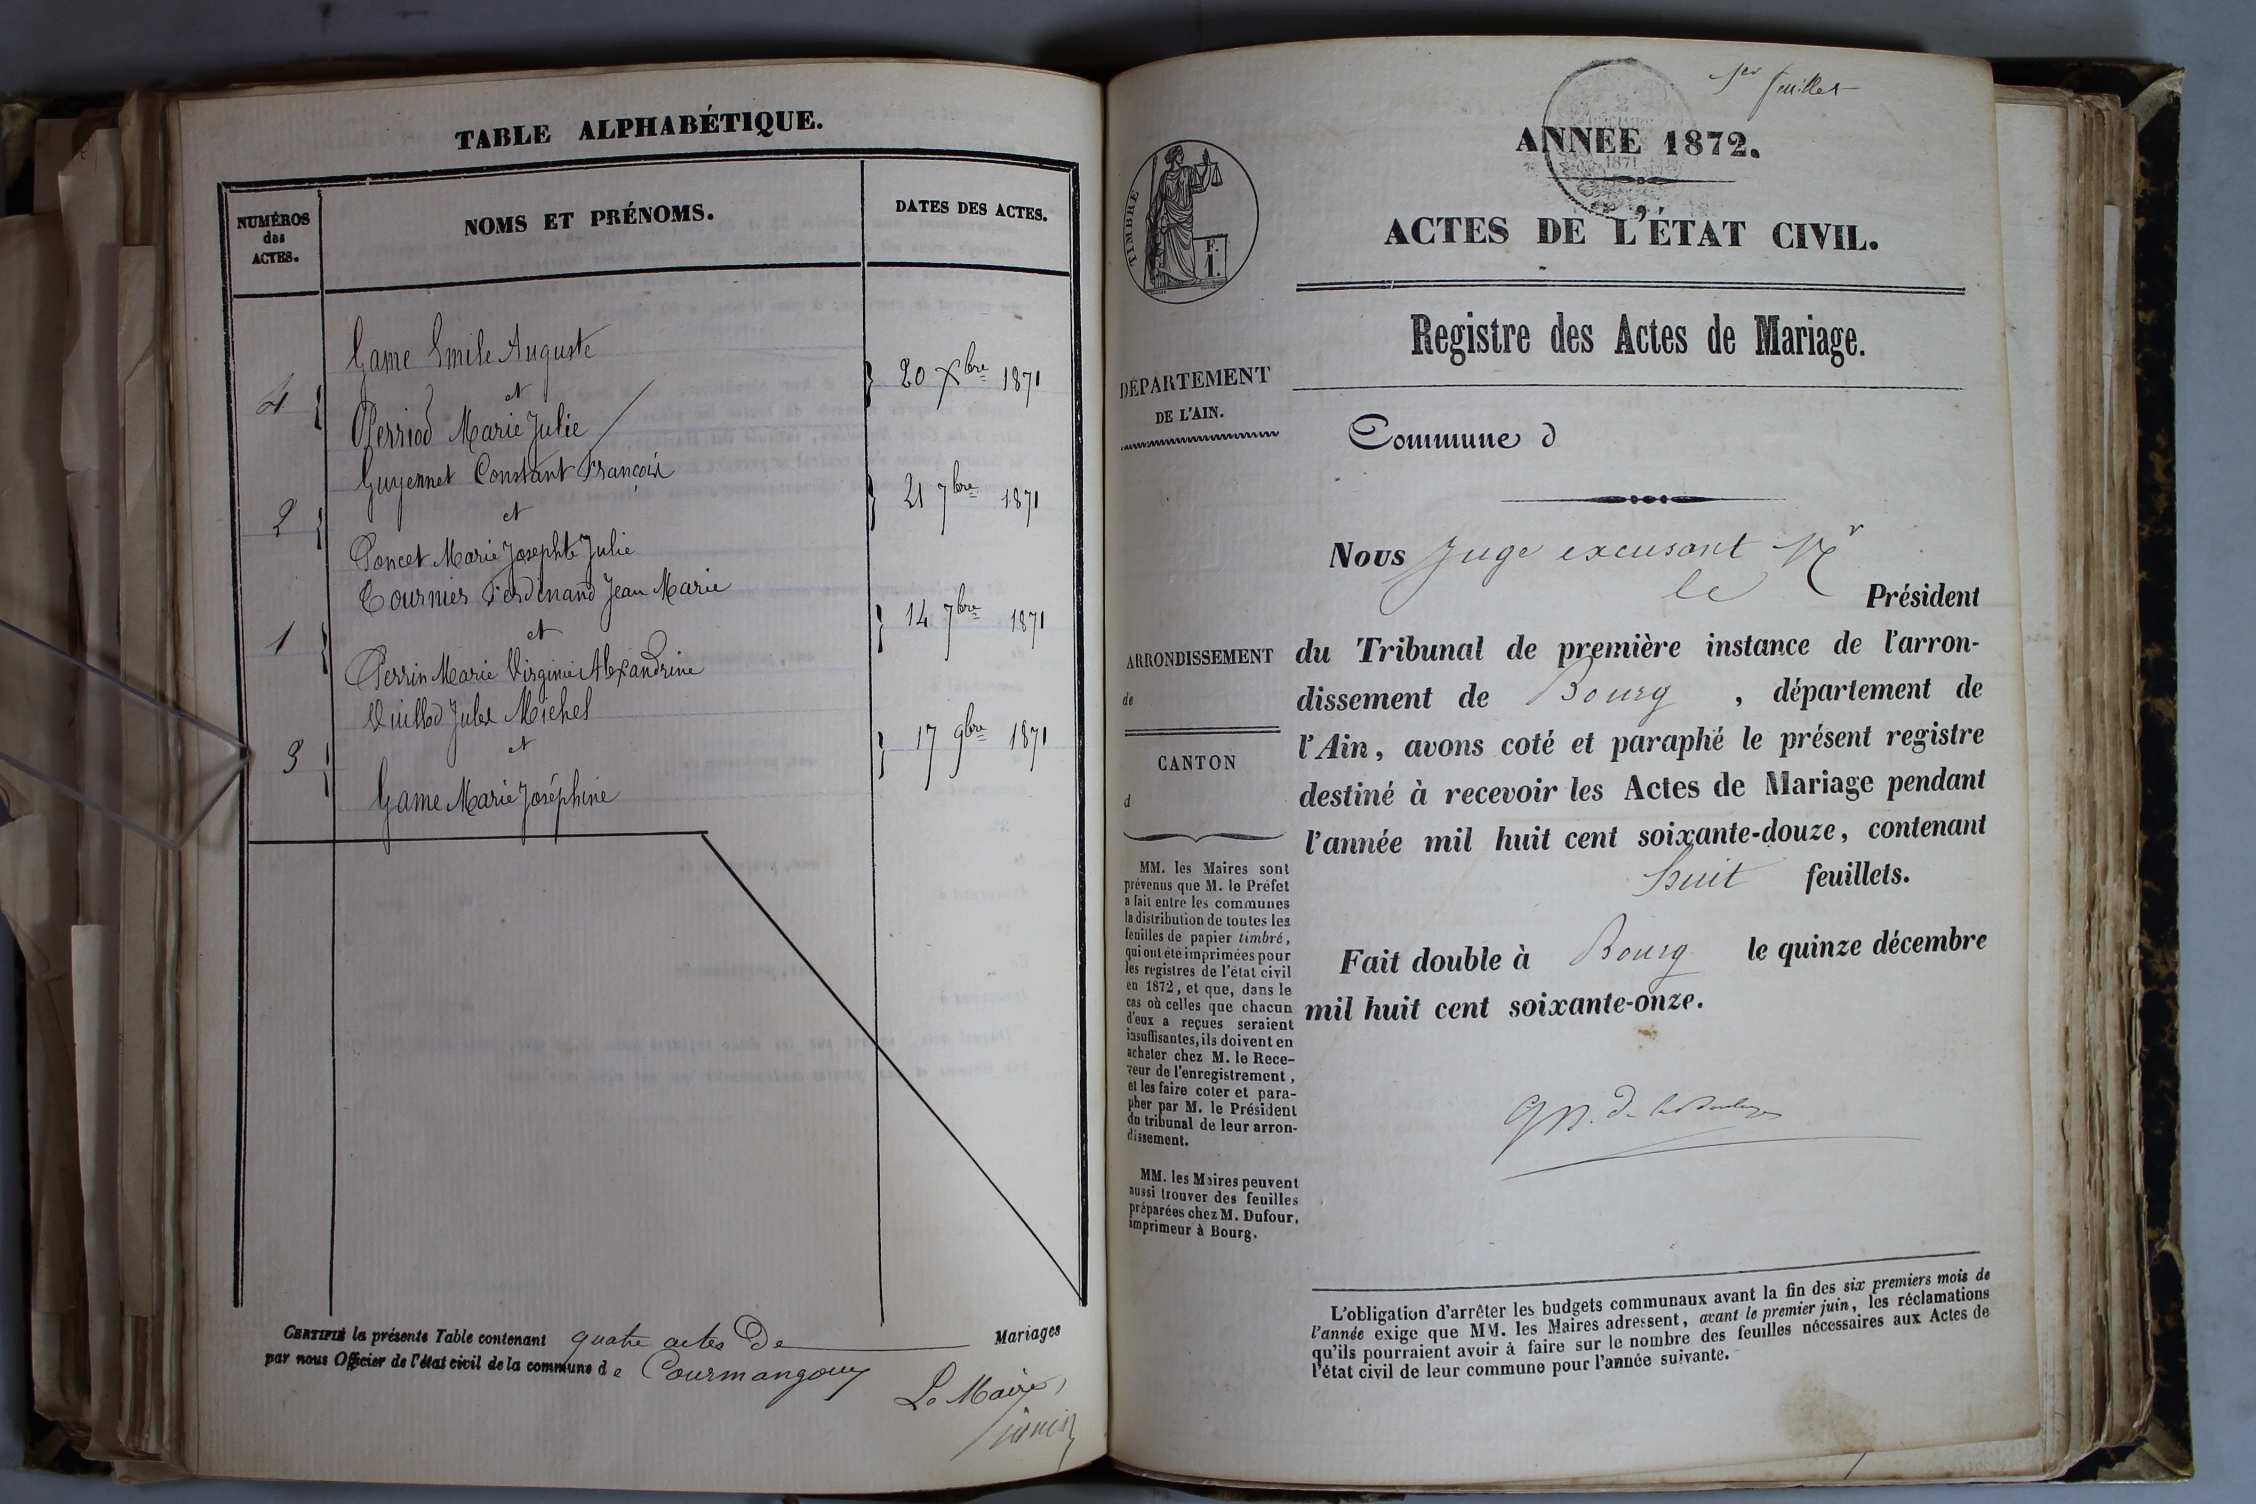 TABLE ALPHABÉTIQUE.
NUMÉROS
des
ACTES.
NOMS ET PRÉNOMS.
DATES DES ACTES.
Game Emile Auguste
4 et 20 Xbre 1871
Perriod Marie Julie
Guyennet Constant François
2 et 21 7bre 1871
Poncet Marie Josephte Julie
Tournier Ferdinand Jean Marie
1 et 14 7bre 1871
Perrin Marie Virginie Alexandrine
Vuillod Jules Michel
3 et 17 9bre 1871
Game Marie Joséphine
CERTIFIÉ la présente Table contenant quatre actes De Mariages
par nous Officier de l'état civil de la commune de Courmangoux
Le Maire
1er feuillet
ANNÉE 1872.
1871
ACTES DE L'ÉTAT CIVIL.
Registre des Actes de Mariage.
TIMBRE
F.
1.
DÉPARTEMENT
DE L'AIN.
ARRONDISSEMENT
de
CANTON
d
MM. les Maires sont
prévenus que M. le Préfet
a fait entre les communes
la distribution de toutes les
feuilles de papier timbré,
qui ont été imprimées pour
les registres de l'état civil
en 1872, et que, dans le
cas où celles que chacun
d'eux a reçues seraient
insuffisantes, ils doivent en
acheter chez M. le Rece-
veur de l'enregistrement,
et les faire coter et para-
pher par M. le Président
du tribunal de leur arron-
dissement.
MM. les Maires peuvent
aussi trouver des feuilles
préparées chez M. Dufour,
imprimeur à Bourg.
Commune d
Nous Juge excusant Mr
le Président
du Tribunal de première instance de l'arron-
dissement de Bourg, département de
l'Ain, avons coté et paraphé le présent registre
destiné à recevoir les Actes de Mariage pendant
l'année mil huit cent soixante-douze, contenant
huit feuillets.
Fait double à Bourg le quinze décembre
mil huit cent soixante-onze.
L'obligation d'arrêter les budgets communaux avant la fin des six premiers mois de
l'année exige que MM. les Maires adressent, avant le premier juin, les réclamations
qu'ils pourraient avoir à faire sur le nombre des feuilles nécessaires aux Actes de
l'état civil de leur commune pour l'année suivante.